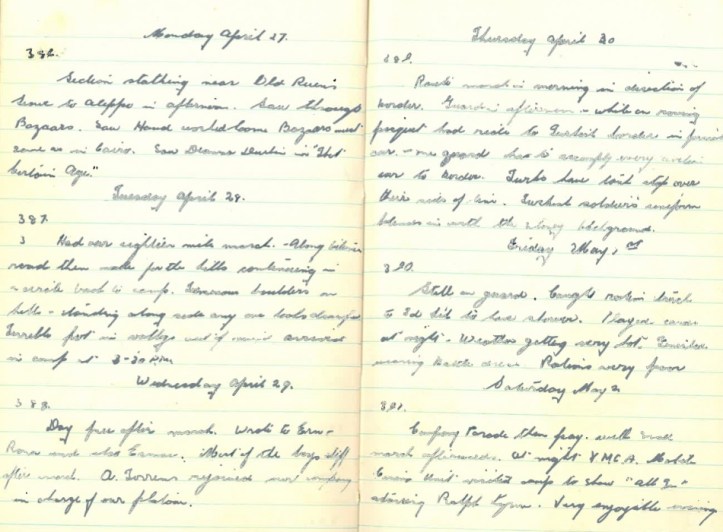 Monday April 27.
386.
Section stalking near Old Ruins
leave to Aleppo in afternoon. Saw through
Bazaars. Saw Hand world loom Bazaars
same as in Cairo. Saw Deanna Durbin in "That
Certain Age."
Tuesday April 28.
387
Had our eighteen mile march. - Along
road then make for the hills continuing in
a circle back to camp. Enormous boulders on
hills - standing along side any one looks dwarfed
Terrible foot in out if
in camp at 3-30 P.M.
Wednesday April 29.
388.
Day free after march. Wrote to
and also Most of the boys stiff
after march. A. Torrens rejoined our company
in charge of our platoon.
Thursday April 30
389.
Route march in morning in direction of
border. Guard in afternoon - while on
had to Turkish border in
car. - one guard has to accompany every
car to border. Turks have look step over
their side of line. Turkish soldier's uniform
blends in with the stoney background.
Friday May 1st
390.
Still on guard. Caught ration truck
to to have shower. Played cards
at night. Weather getting very hot.
wearing battle dress Rations very poor
Saturday May 2
391.
Company Parade then pay. with
march afterwards. At night Y.M.C.A. Mobile
Cinema Unit visited camp to show "All In"
starring Ralph Lynn. Very enjoyable evening